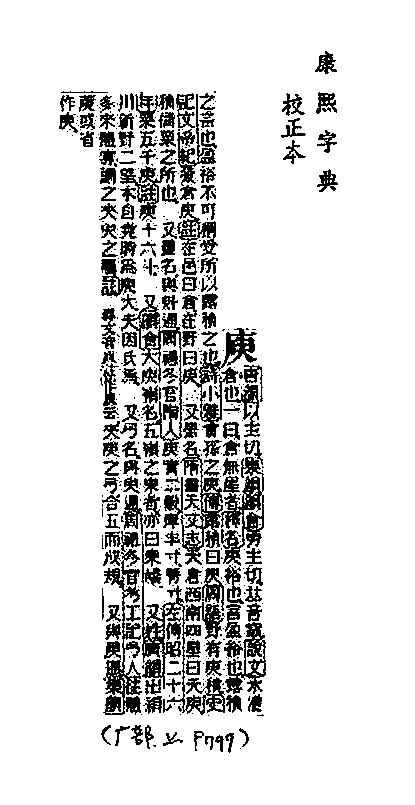 康熙字典
校正本
庾
唐韻以主切集韻韻會勇主切𠀤音㝢說文水漕
倉也一曰倉無屋者釋名庾裕也言盈裕也露積
之言也盈裕不可稱受所以露積之也詩小雅曾孫之庾傳露積曰庾周語野有庾積史
記文帝紀發倉庾註在邑曰倉在野曰庾 又星名隋書天文志天倉西南四星曰天庾
積倉粟之所也 又量名與斞通周禮冬官陶人庾實二觳厚半寸脣寸左傳昭二十六
年粟五千庾註庾十六斗 又韻會大庾嶺名五嶺之東者亦曰東嶠 又姓廣韻出潁
川新野二望本自堯時爲庾大夫因氏焉 又弓名與臾通周禮冬官考工記弓人往體
多來體寡謂之夾臾之屬註 夾庾之弓合五而成規 又與 通集韻
或省
作庾
(广部 P799)